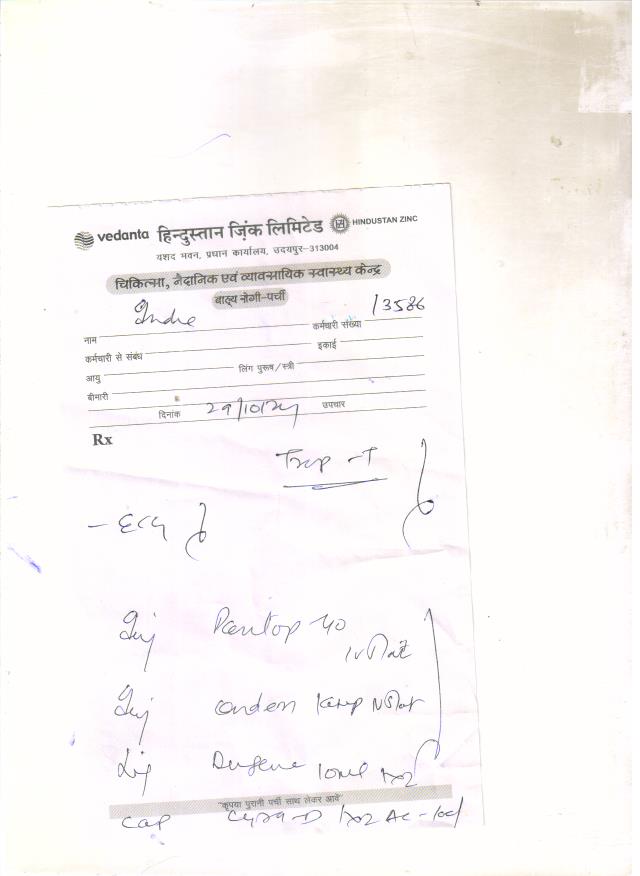 vedanta हिन्दुस्तान ज़िंक लिमिटेड HINDUSTAN ZINC
यशद भवन, प्रधान कार्यालय, उदयपुर-313004
चिकित्सा, नैदानिक एवं व्यावसायिक स्वास्थ्य केन्द्र
बाह्य रोगी-पर्ची
नाम कर्मचारी संख्या 13586
कर्मचारी से संबंध इकाई
आयु लिंग पुरूष/स्त्री
बीमारी
दिनांक 29/10/24 उपचार
Rx
Trop-T
- ECG
Inj Pantop 40
IV Stat
Inj Onden 1 amp IV Stat
10ml 1x2
"कृपया पुरानी पर्ची साथ लेकर आवें"
Cap Cyra-D 1x2 AC